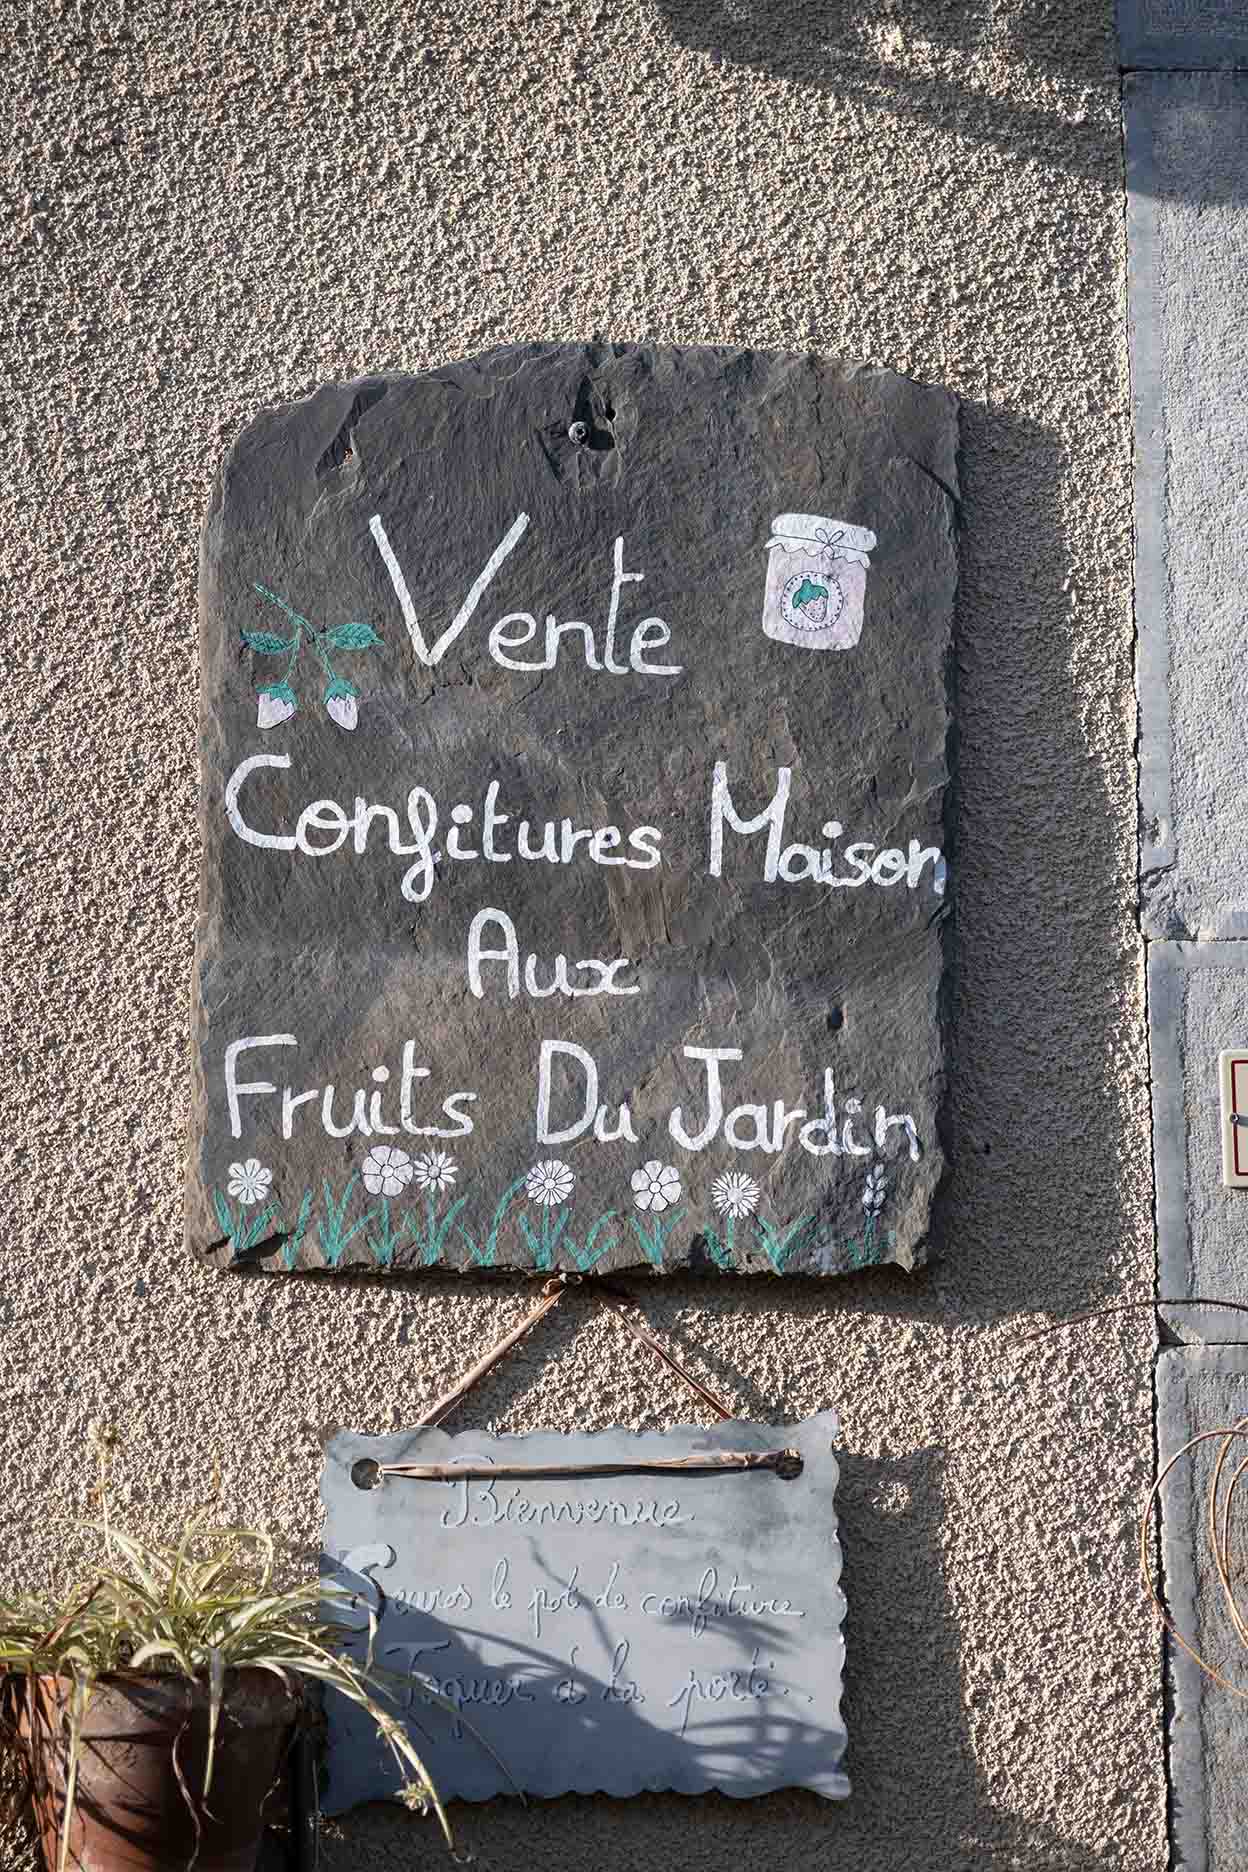 Vente
Confitures Maison
Aux
Fruits Du Jardin
Bienvenue
5 euros le pot de confiture
Toquer à la porte..